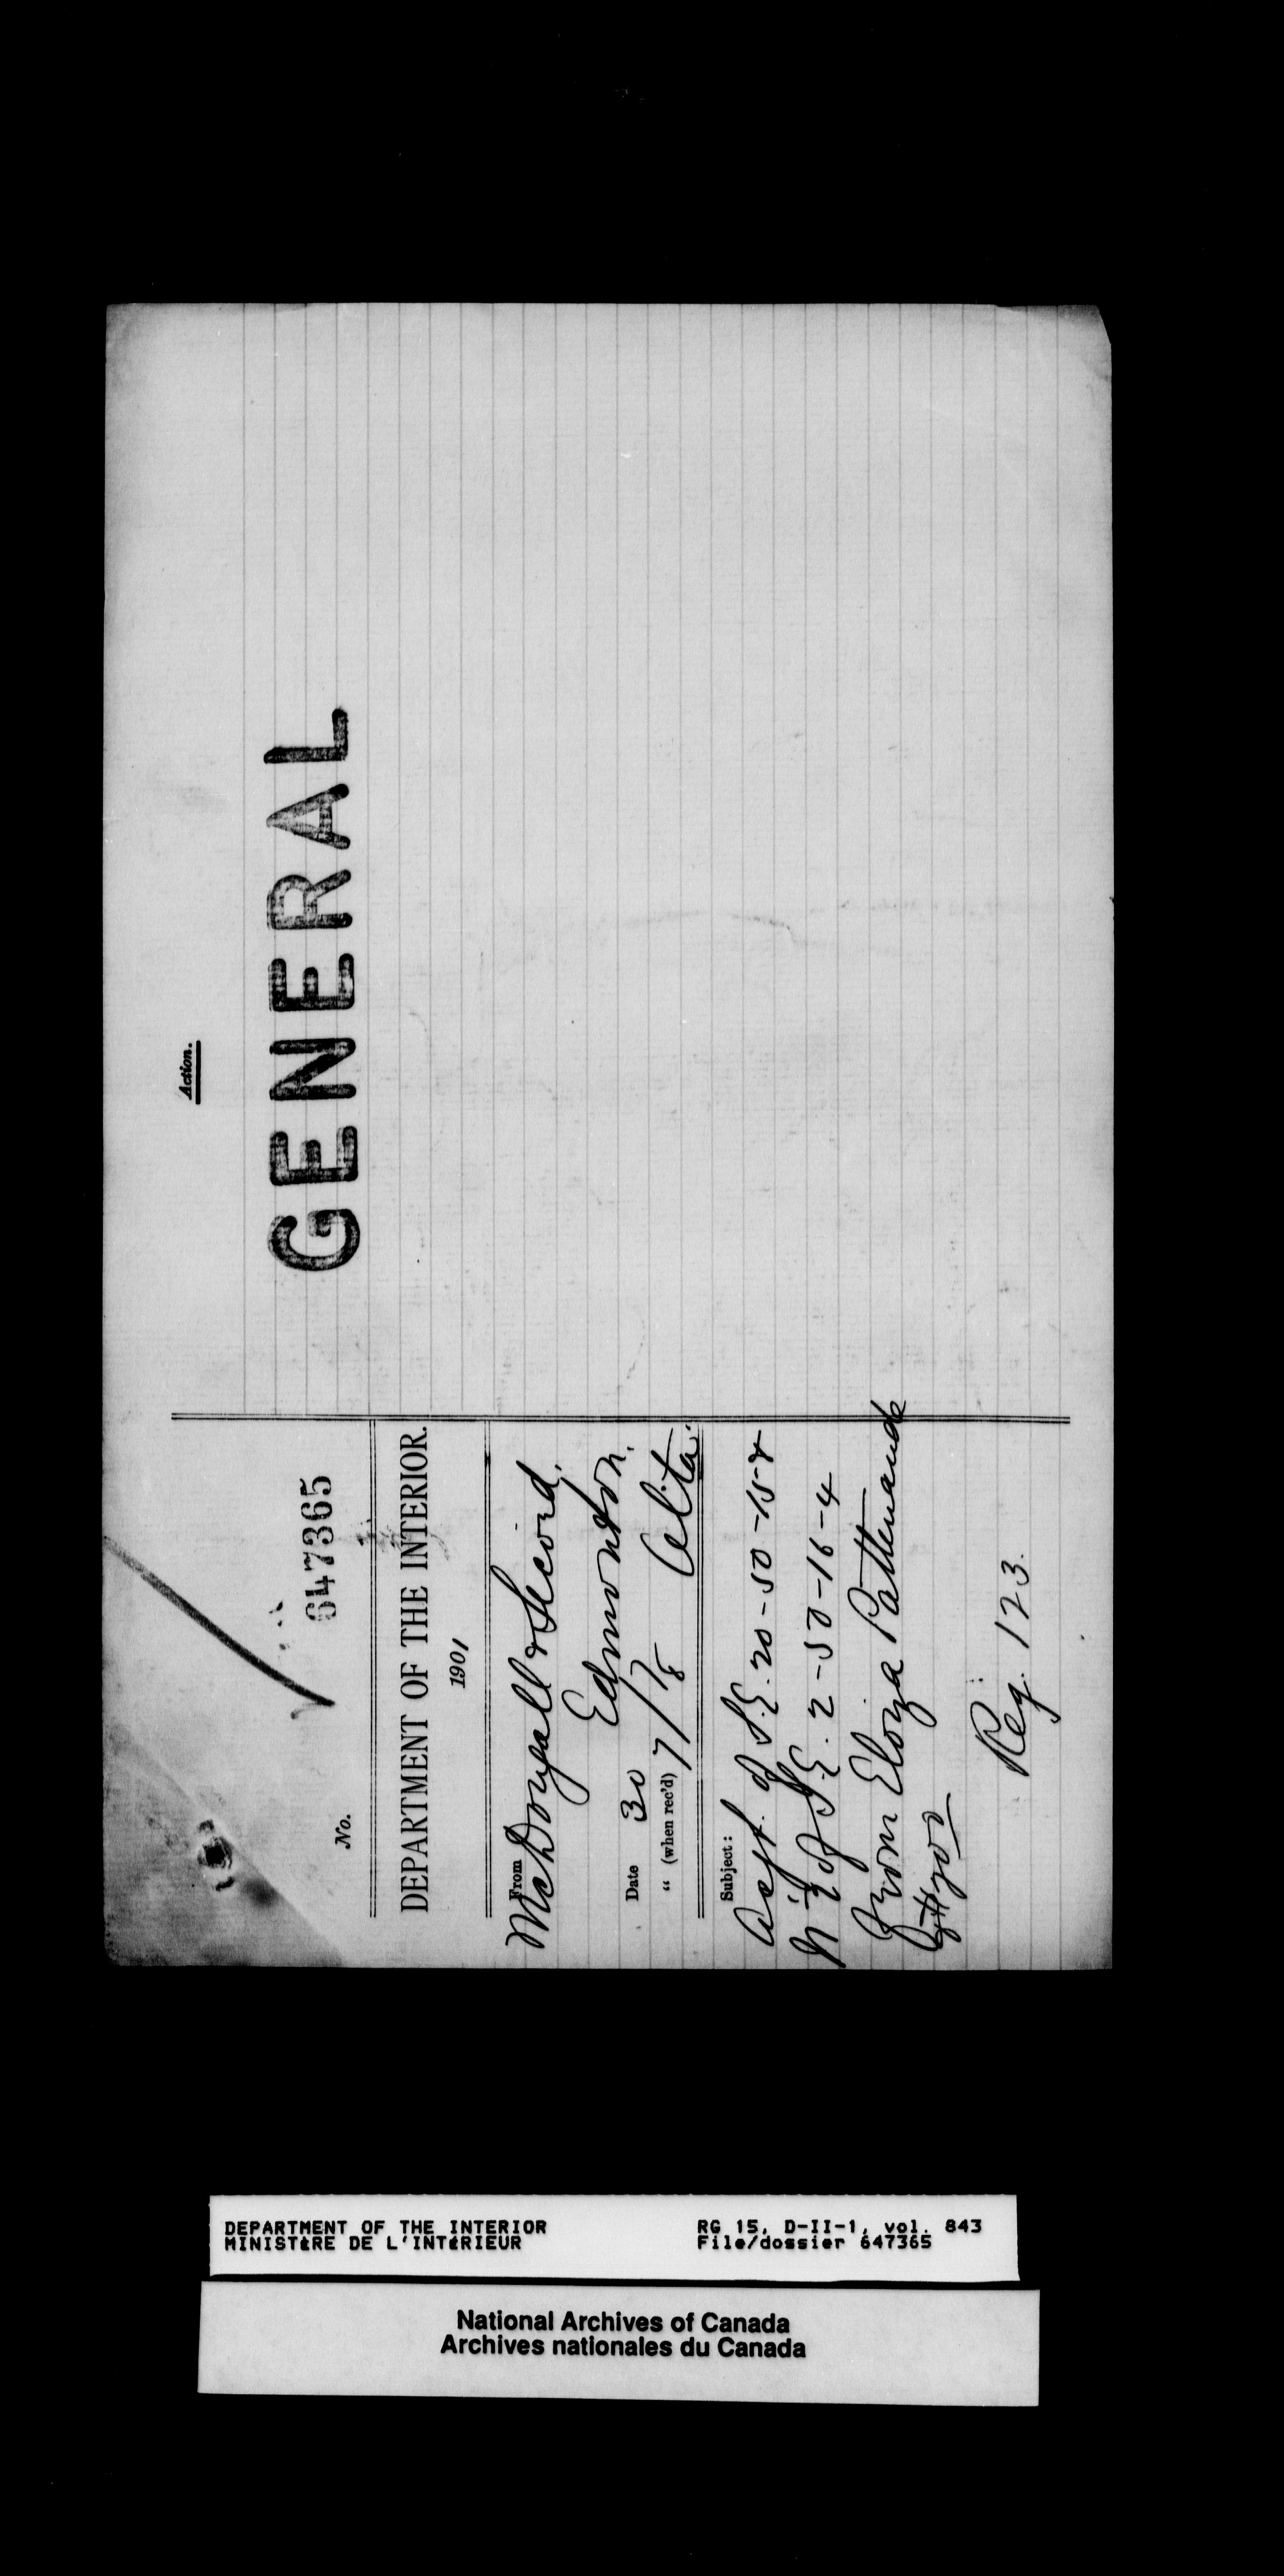 No. 647365
DEPARTMENT OF THE INTERIOR.
1901
From
McDougall & Secord,
Edmonton,
Date 30/7
Alta.
" (when rec'd) 7/8
Subject:
Asgt. of S.E. 20-50-15-4
N ½ of S.E. 2-50-16-4
from Eloiza Pattenaude
Reg. 123.
Action.
GENERAL
DEPARTMENT OF THE INTERIOR
MINISTÈRE DE L'INTÉRIEUR
RG 15, D-II-1, vol. 843
File/dossier 647365
National Archives of Canada
Archives nationales du Canada